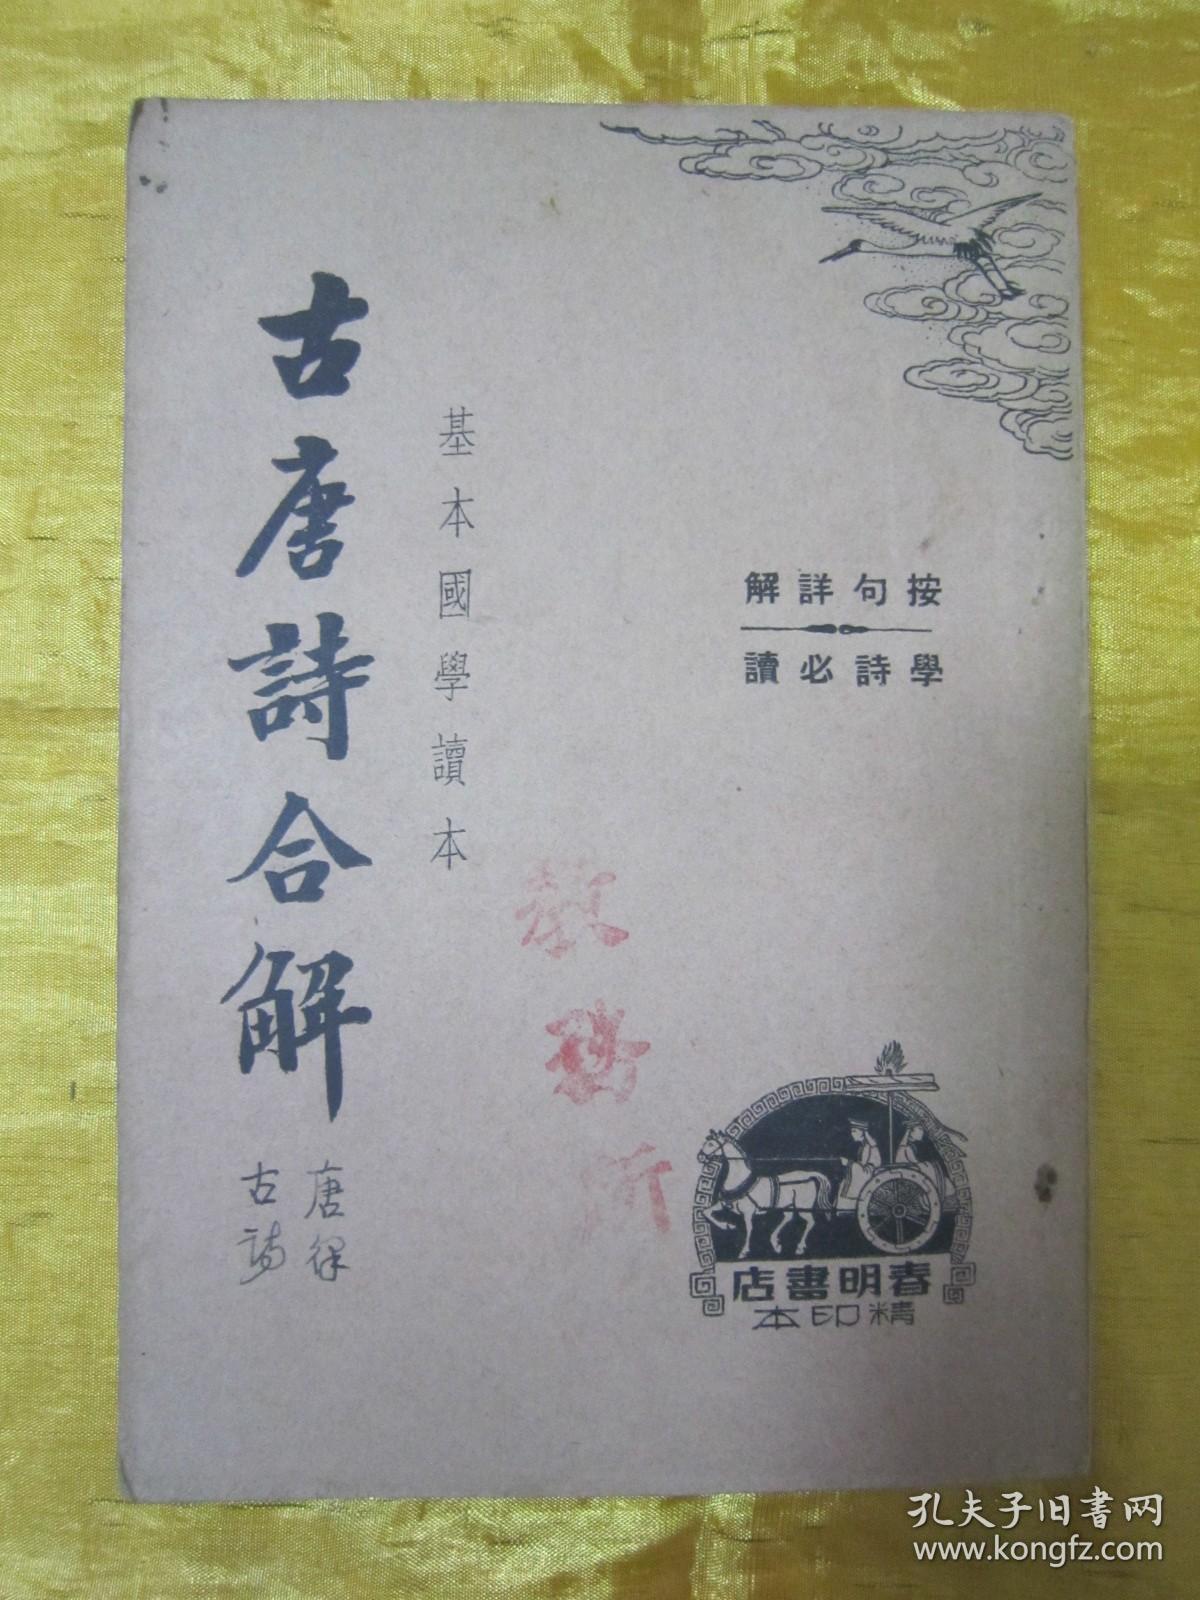 按句詳解
學詩必讀
基本國學讀本
古唐詩合解
唐律
古詩
教務所
春明書店
精印本
孔夫子旧书网
www.kongfz.com